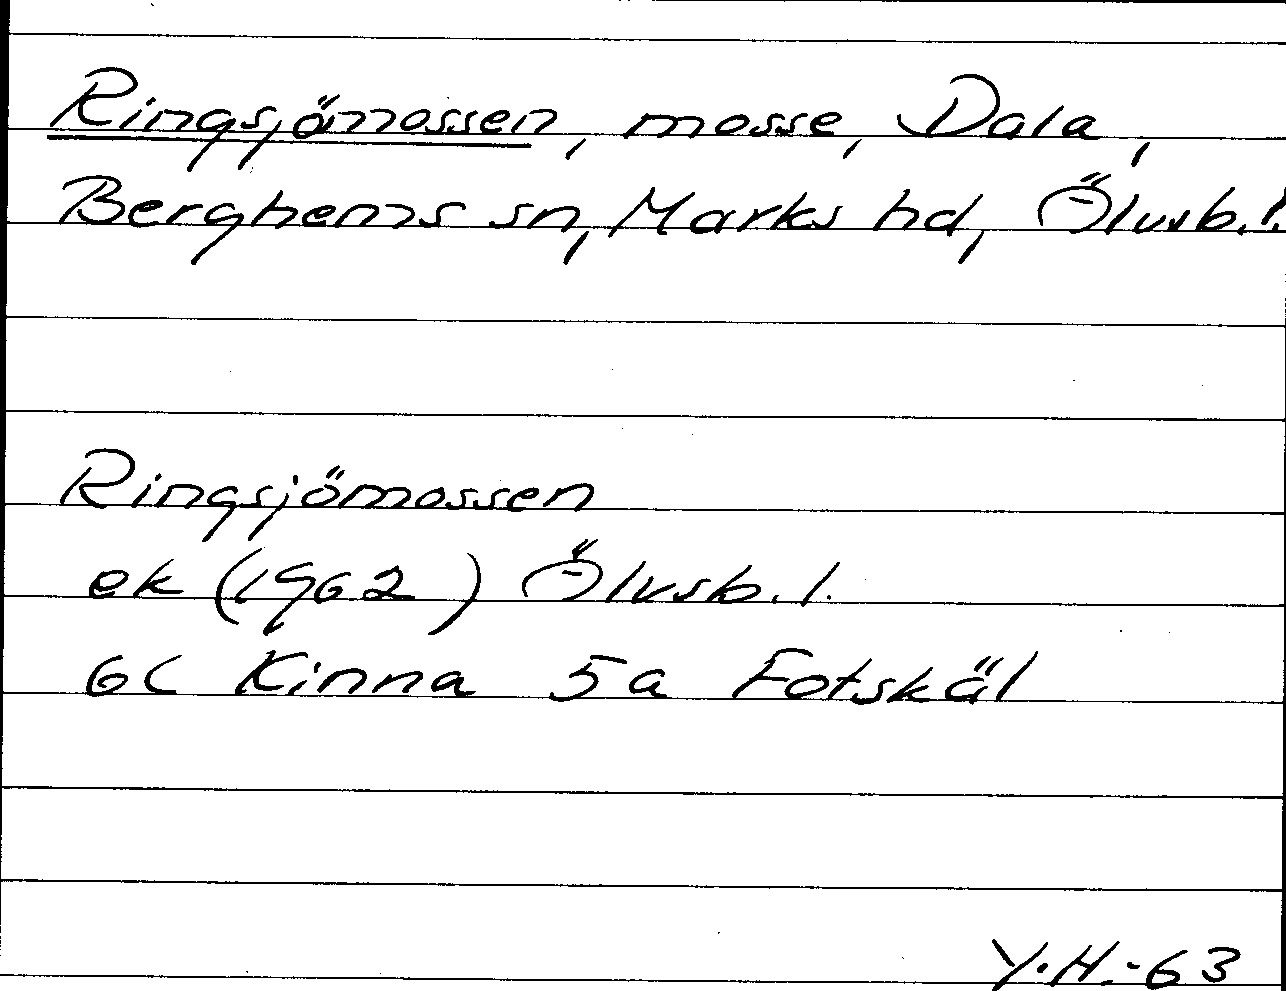 Ringsjömossen, mosse, Dala,
Berghems sn, Marks hd, Älvsb.l.
Ringsjömossen
ek (1962) Älvsb.l.
6C Kinna 5a Fotskäl
Y.H.-63